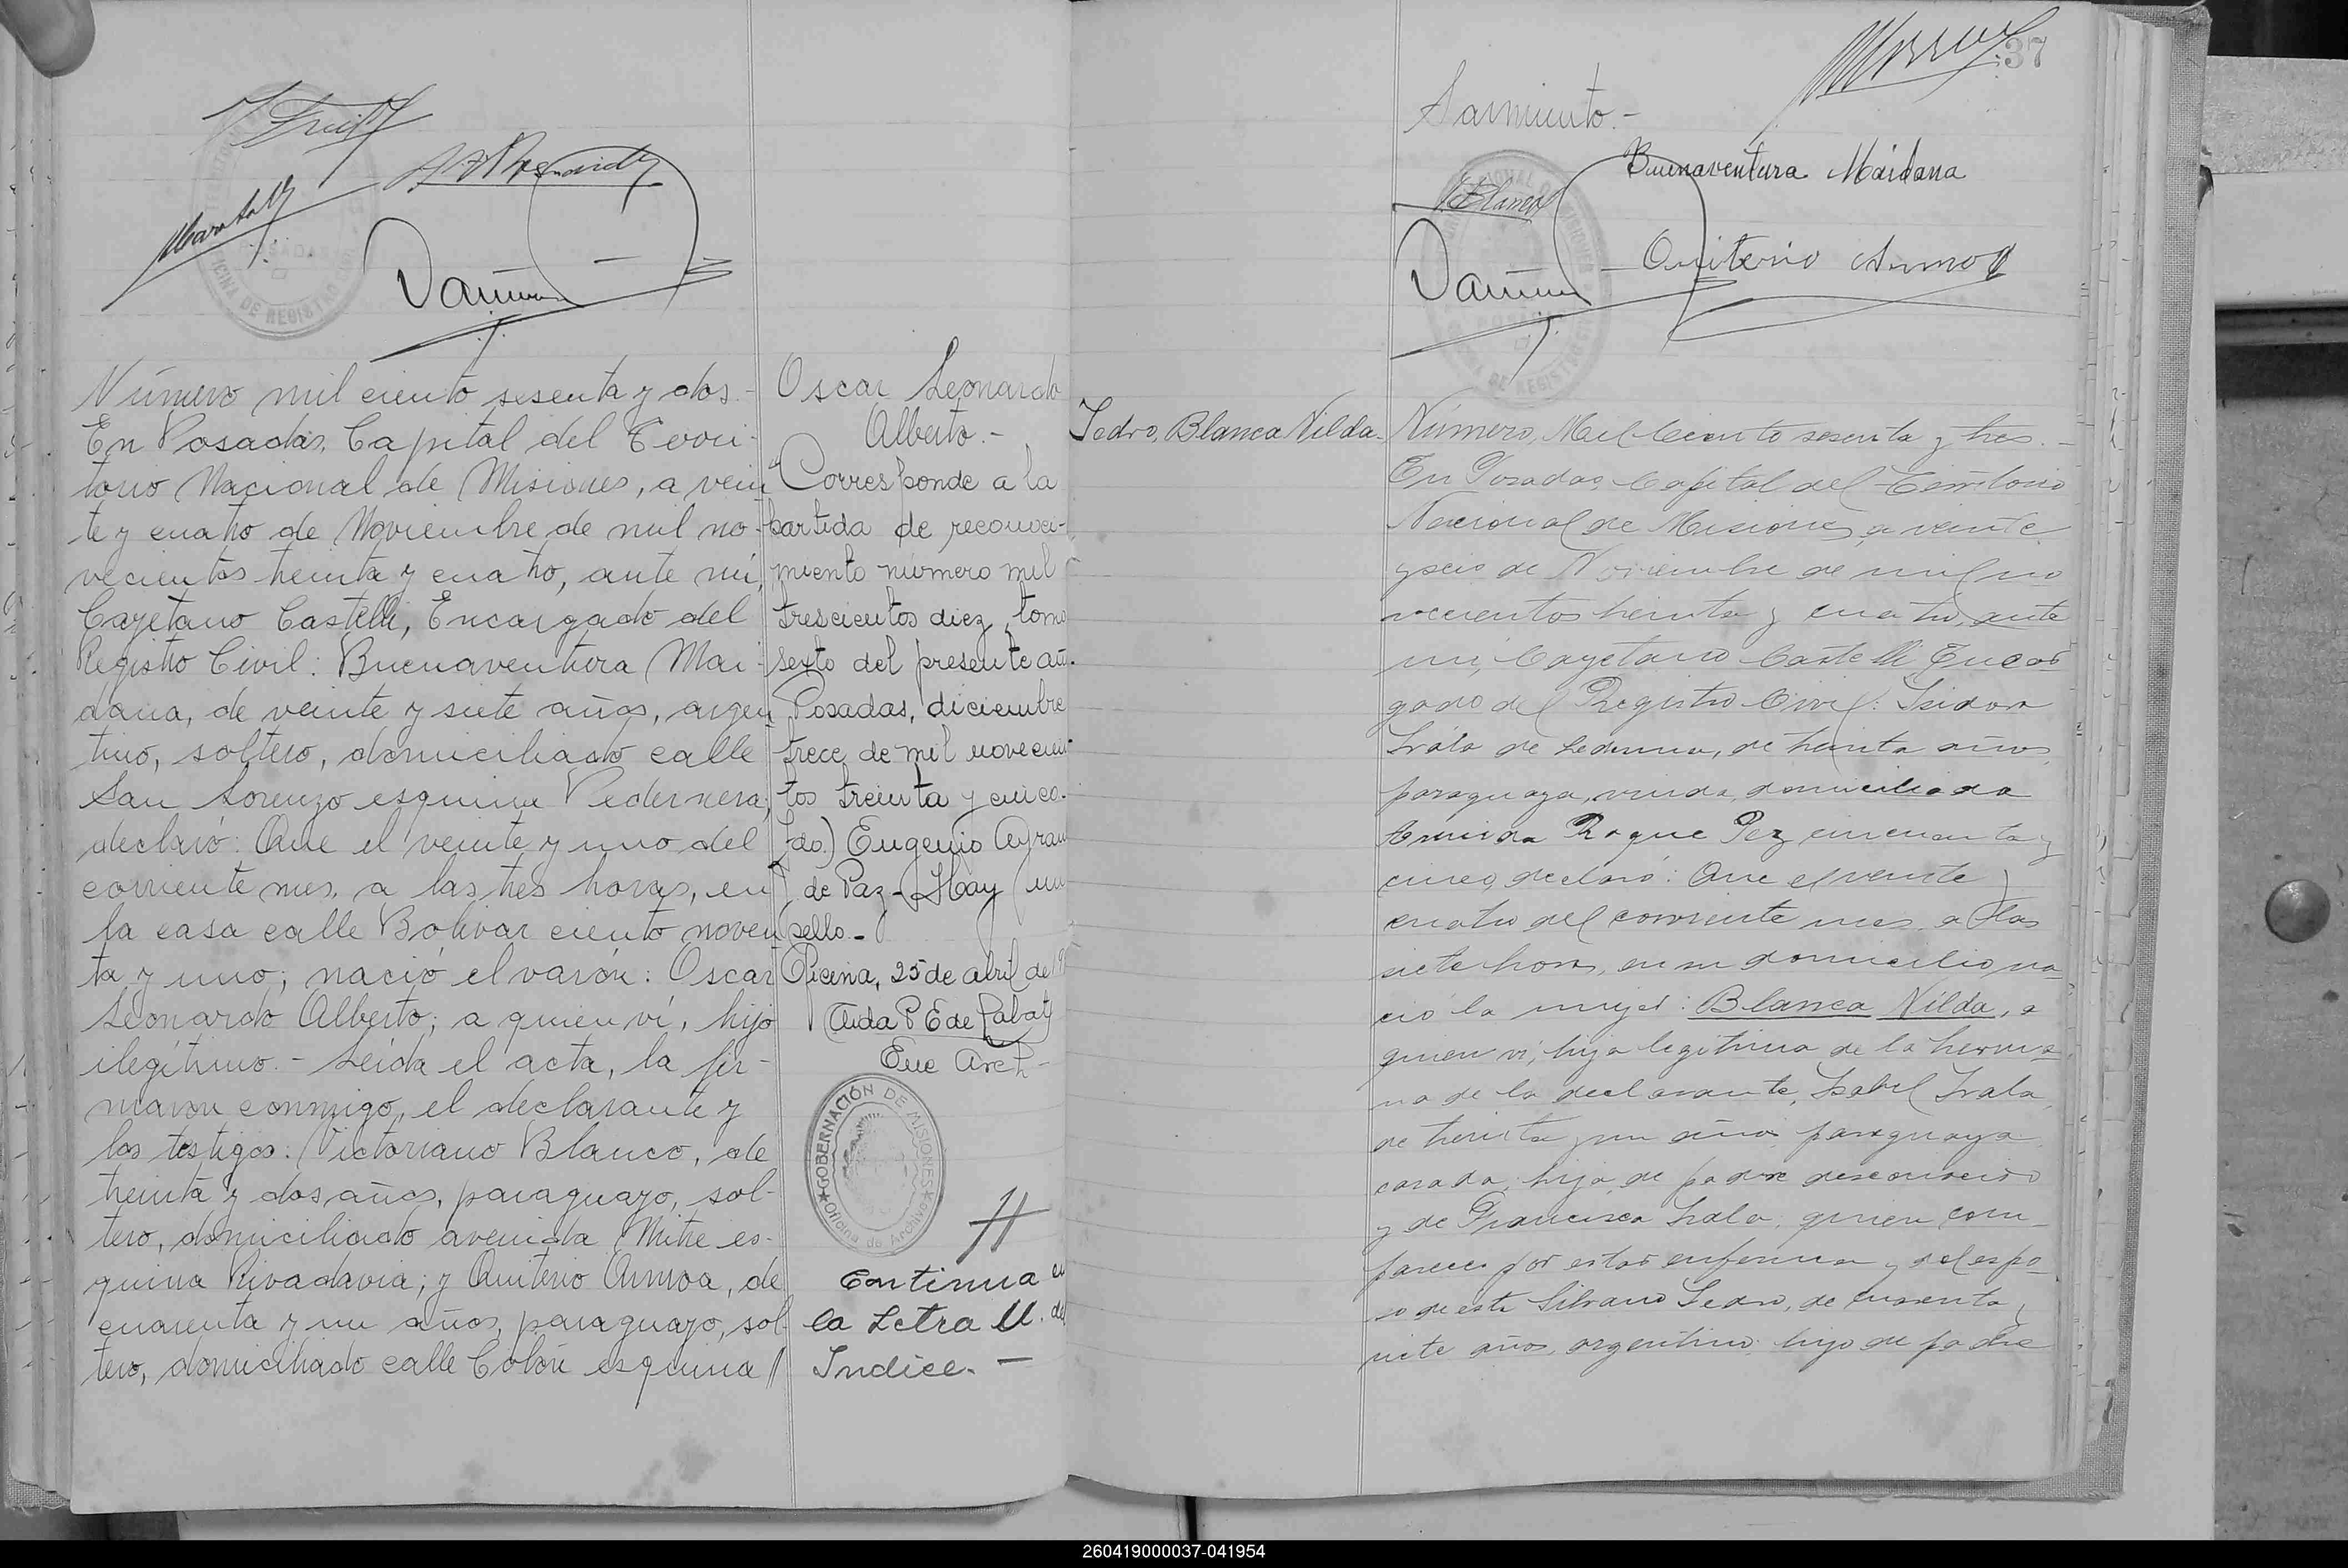 Número mil ciento sesenta y dos.-
En Posadas, Capital del Terri-
torio Nacional de Misiones, a vein
te y cuatro de Noviembre de mil no-
vecientos treinta y cuatro, ante mí,
Cayetano Castelli, Encargado del
Registro Civil: Buenaventura Mai-
dana, de veinte y siete años, argen
tino, soltero, domiciliado calle
San Lorenzo esquina Pedernera,
declaró: Que el veinte y uno del
corriente mes, a las tres horas, en
la casa calle Bolívar ciento noven
ta y uno; nació el varón: Oscar
Leonardo Alberto; a quien ví, hijo
ilegítimo.- Leída el acta, la fir-
maron conmigo, el declarante y
los testigos: Victoriano Blanco, de
treinta y dos años, paraguayo, sol-
tero, domiciliado avenida Mitre es-
quina Rivadavia; y Quiterio Armoa, de
cuarenta y un años, paraguayo, sol-
tero, domiciliado calle Colón esquina //
Oscar Leonardo
Alberto.-
"Corresponde a la
partida de reconoci-
miento número mil
trescientos diez, tomo
sexto del presente añ.
Posadas, diciembre
trece de mil novecien
tos treinta y cinco.
fdo.) Eugenio Ayran
de Paz- Hay un
sello.-
Oficina, 25 de abril de
Aida P E de
Enc Arch-
GOBERNACIÓN DE MISIONES
Oficina de Archivo
//
Continua en
la Letra M. del
Indice.-
37
Sarmiento.-
Buenaventura Maidana
V. Blanco
Quiterio Armoa
Ledro, Blanca Nilda.
Número, Mil Ciento sesenta y tres.-
En Posadas Capital del Territorio
Nacional de Misiones, a veinte
y seis de Noviembre de mil no
vecientos treinta y cuatro, ante
mi, Cayetano Castelli Encar
gado del Registro Civil: Isidora
Irala de Ledesma, de treinta años,
paraguaya, viuda, domiciliada
Avenida Roque Pez cincuenta y
cinco, declaró: Que el veinte y
cuatro del corriente mes, a las
siete horas, en su domicilio na-
ció la mujer: Blanca Nilda, a
quien ví, hija legítima de la herma
na de la declarante, Isabel Irala,
de treinta y un años paraguaya
casada, hija de padre desconocido
y de Francisca Irala, quien com-
parece por estar enferma y del espo-
so de esta Silvano Ledro, de cuarenta y
siete años, argentino, hijo de padre